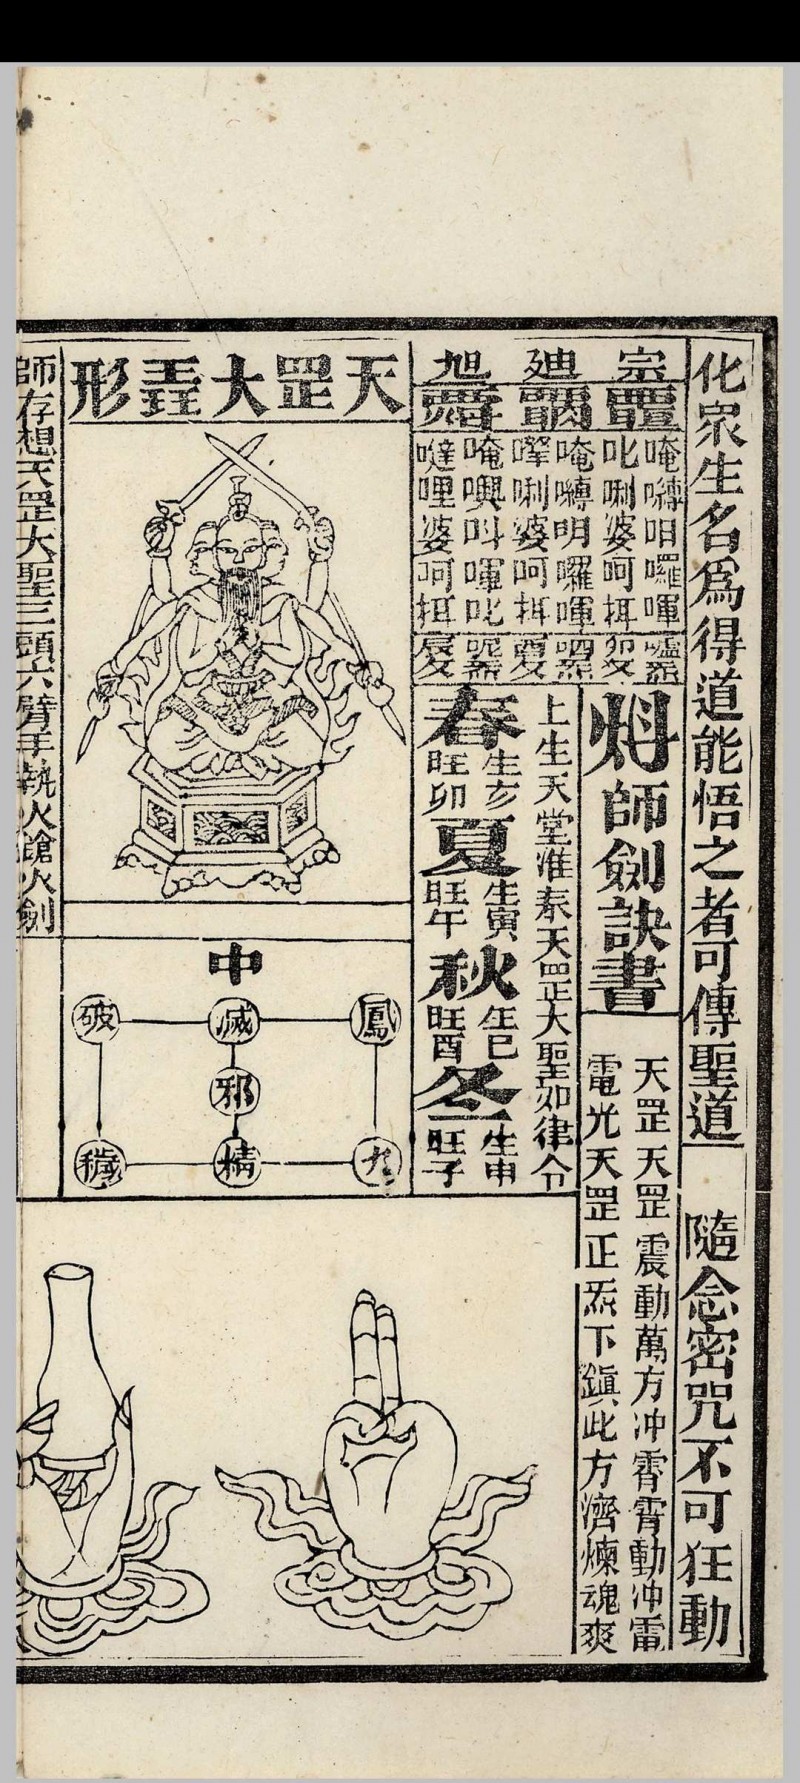 化衆生名爲得道能悟之者可傳聖道
隨念密咒不可狂動
宗
廸
旭
唵囀㕵囉㖶
叱唎婆呵抯
唵囀明囉㖶
㘑唎婆呵抯
唵㘌呌㖶叱
噠哩婆呵抯
師劍訣書
天罡天罡震動萬方冲霄霄動冲雷
電光天罡正炁下鎮此方濟煉魂爽
上生天堂准奉天罡大聖如律令
春
生亥
旺卯
夏
生寅
旺午
秋
生巳
旺酉
冬
生申
旺子
天罡大聖形
中
鳳
滅
破
邪
九
精
穢
師存想天罡大聖三頭六臂手執火鎗火劍